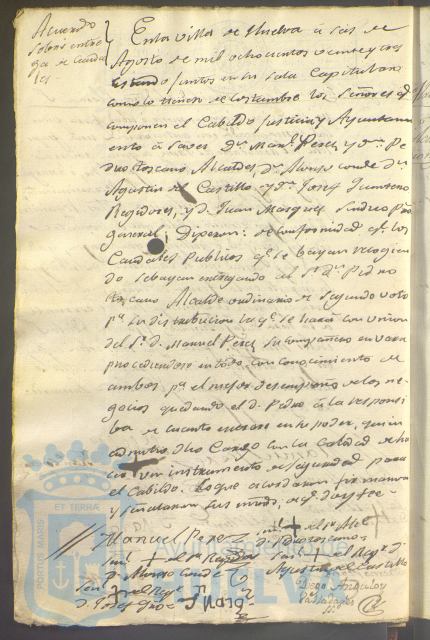 Acuerdo
sobre entre
ga de Cauda
les
En la villa de Huelva à seis de
Agosto de mil ochocientos veinte y tres
estando juntos en su sala Capitular
como lo tienen de costumbre los Señores q.e
componen el Cabildo Justicia y Ayuntami
ento à saver D.n Man.l Perez y D.n Pe
dro Toscano Alcaldes, D.n Alonso Conde D.n
Agustin del Castillo y D.n Josef
Regidores, y D. Juan Marquez Sindico Pro.
general; Dijeron: de conformidad q.e los
Caudales Publicos q.e se hayan recogien
do se bayan entregando al S.r D.n Pedro
Toscano Alcalde ordinario de segundo voto
p.a su distribucion la q.e se hará con union
del S.r D. Manuel Perez su compañero en vara
procediendose en todo con conocimiento de
ambos p.a el mejor desempeño de los ne
gocios quedando el D. Pedro à la responsi
va de cuanto entrase en su poder, quien
admitio dho Cargo con la calidad de ha
cer un instrumento de seguridad para
el Cabildo. Lo que acordaron firmaron
y señalaron sus mrds, de q.e doy fee
Manuel Perez
señal + del S.r Alc.e
D. Pedro Toscano
señal + del S.r Regidor
D. Alonso Conde
Señal + del Reg.r D.
Agustin del Castillo
señal + del Reg.r
D. Josef
Diego
ET TERRÆ
PORTUS MARIS
HUELVA